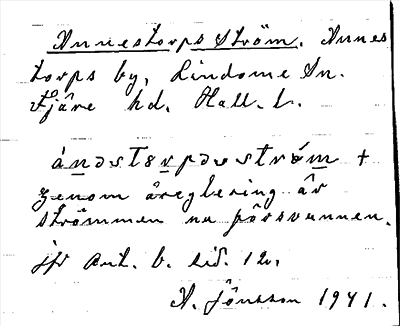 Annestorps ström. Annes
torps by, Lindome Sn.
Fjäre hd. Hall. l.
ánǝstɤrpǝsström +
Genom åreglering är
strömmen nu försvunnen.
jfr ant. b. sid. 12.
A. Jönsson 1941.